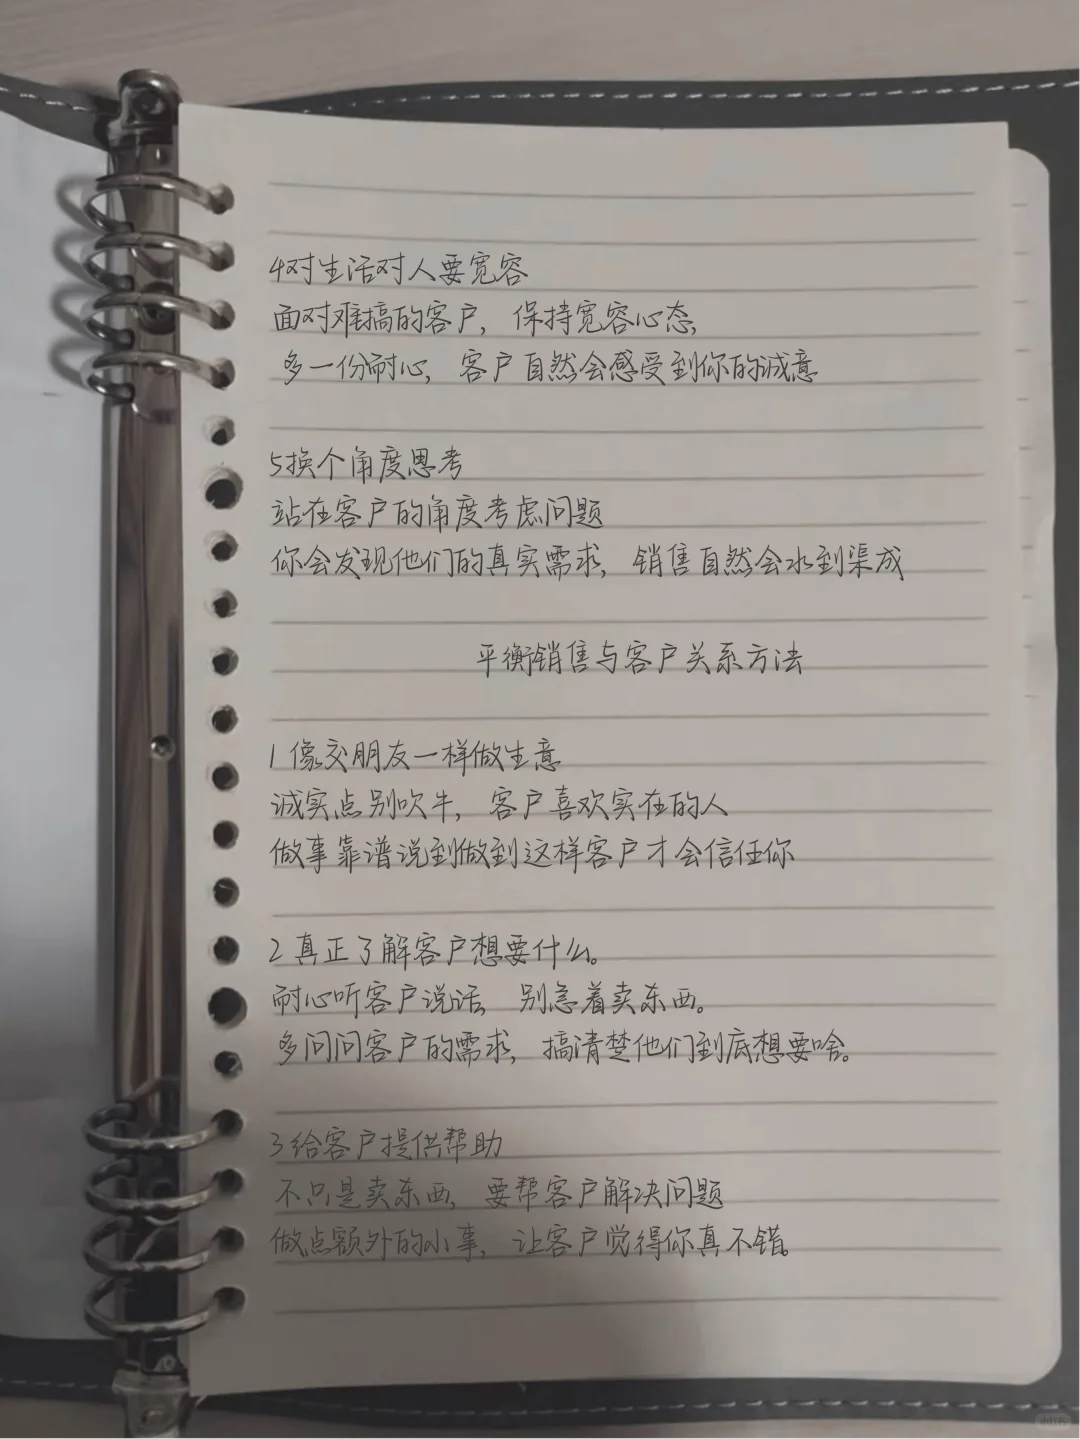 4对生活对人要宽容
面对难搞的客户，保持宽容心态，
多一份耐心，客户自然会感受到你的诚意
5换个角度思考
站在客户的角度考虑问题
你会发现他们的真实需求，销售自然会水到渠成
平衡销售与客户关系方法
1像交朋友一样做生意
诚实点别吹牛，客户喜欢实在的人
做事靠谱说到做到这样客户才会信任你
2真正了解客户想要什么。
耐心听客户说话，别急着卖东西。
多问问客户的需求，搞清楚他们到底想要啥。
3给客户提供帮助
不只是卖东西，要帮客户解决问题
做点额外的小事，让客户觉得你真不错。